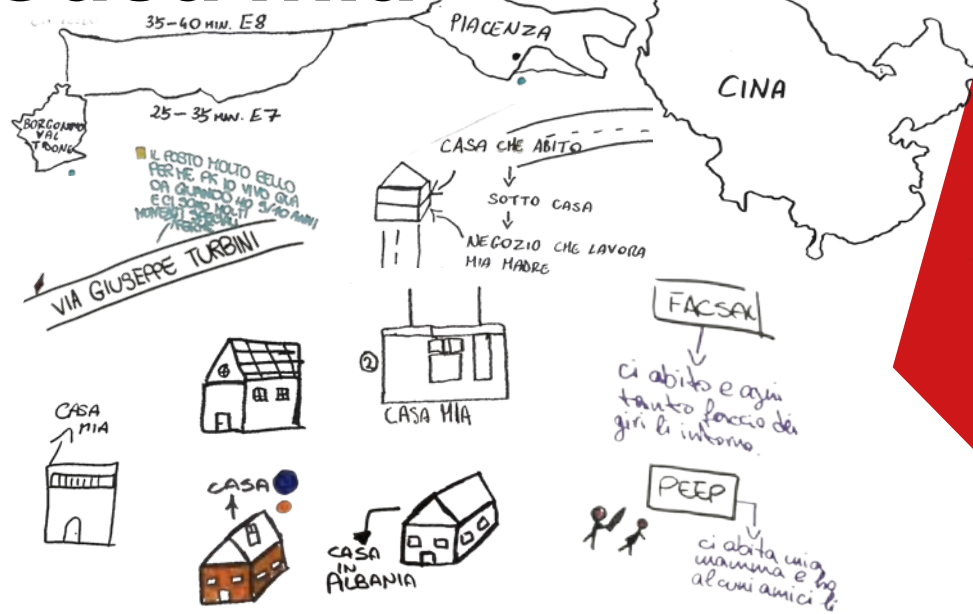 35-40 MIN. E8
PIACENZA
CINA
25-35 MIN. E7
BORGONOVO
VAL
TIDONE
IL POSTO MOLTO BELLO
PER ME PK IO VIVO QUA
DA QUANDO HO 9/10 ANNI
E CI SONO MOLTI
MOMENTI SPECIALI
VIA GIUSEPPE TURBINI
CASA CHE ABITO
SOTTO CASA
NEGOZIO CHE LAVORA
MIA MADRE
FACSAL
ci abito e ogni
tanto faccio dei
giri li intorno.
2
CASA MIA
CASA
MIA
CASA
CASA
IN
ALBANIA
PEEP
ci abita mia
mamma e ho
alcuni amici li